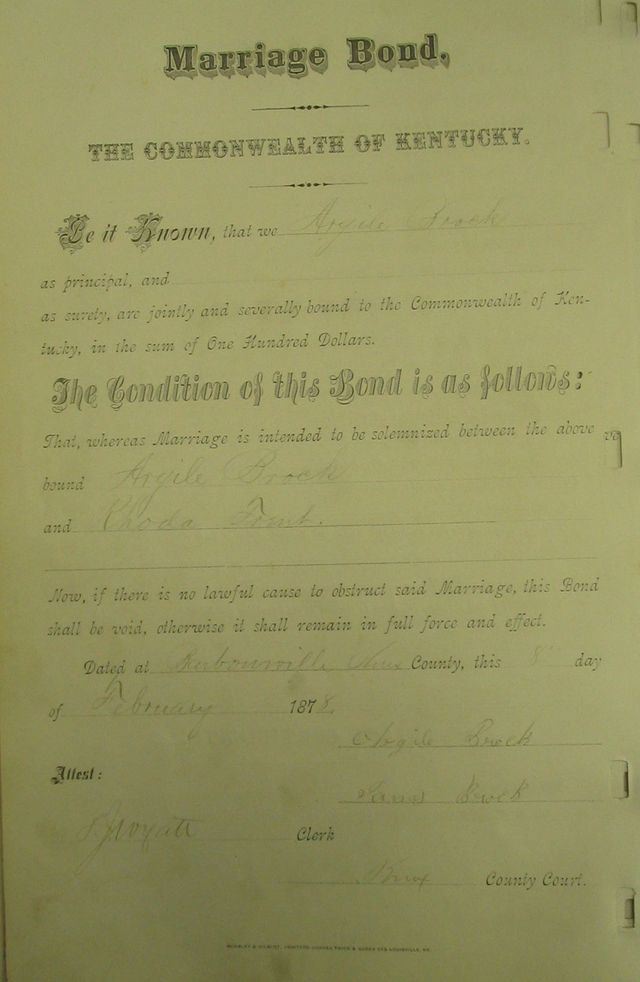 Marriage Bond.
THE COMMONWEALTH OF KENTUCKY.
Be it Known, that we Argile Brock
as principal, and
as surety, are jointly and severally bound to the Commonwealth of Ken-
tucky, in the sum of One Hundred Dollars.
The Condition of this Bond is as follows:
That, whereas Marriage is intended to be solemnized between the above
bound Argile Brock
and Rhoda
Now, if there is no lawful cause to obstruct said Marriage, this Bond
shall be void, otherwise it shall remain in full force and effect.
Dated at Knox County, this 8" day
of February 1878.
Argile Brock
Brock
Attest:
Clerk
Knox County Court.